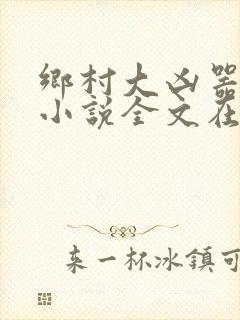 鄉村大凶
小說全文在
來一杯冰鎮可